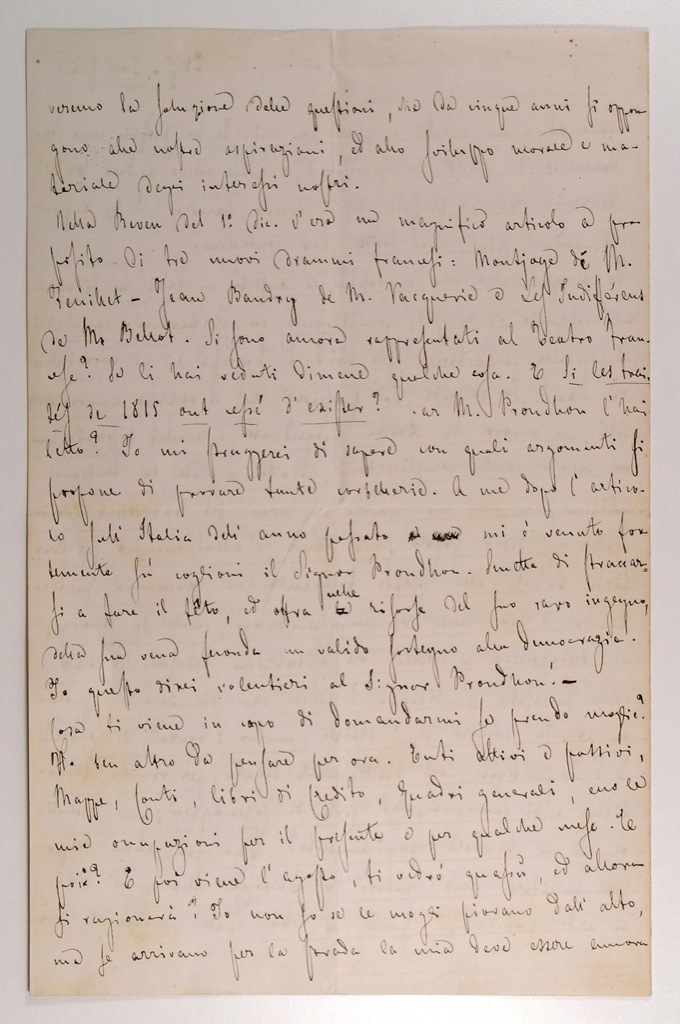 veremo la soluzione delle questioni, che da cinque anni si oppon-
gono alle nostre aspirazioni, ed allo sviluppo morale e ma-
teriale degli interessi nostri.
Nella Revue del 1º Dic. v'era un magnifico articolo a pro-
posito di tre nuovi drammi francesi: Montjoye de M.
Feuillet - Jean Baudry de M. Vacquerie e Les Indifférens
de Mr Bellot. Si sono ancora rappresentati al Teatro fran-
cese? Se li hai veduti dimene qualche cosa. E Si les trai-
tés de 1815 ont cessé d'exister? par M. Proudhon l'hai
letto? Io mi struggerei di sapere con quali argomenti si
propone di provare tante corbellerie. A me dopo l'artico-
lo sull'Italia dell'anno passato mi è venuto for-
temente su' coglioni il Signor Proudhon. Smetta di straccar-
si a fare il , ed offra nelle risorse del suo raro ingegno,
della sua vena feconda un valido sostegno alla Democrazia.
Io questo direi volentieri al Signor Proudhon! -
Cosa ti viene in capo di domandarmi se prendo moglie?
Ho ben altro da pensare per ora. Enti attivi e passivi,
Mappe, Conti, libri di Credito, Quadri generali, ecco le
mie occupazioni per il presente e per qualche mese. E
poi? E poi viene l'agosto, ti vedrò quassù, ed allora
si ragionerà! Io non so se le mogli piovano dall'alto,
ma se arrivano per la strada la mia deve essere ancora